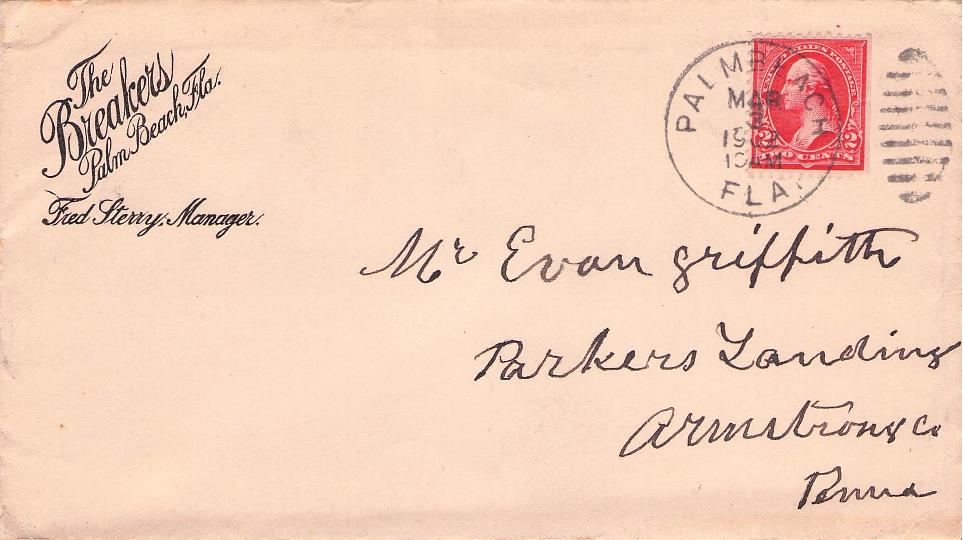 The
Breakers
Palm Beach, Fla.
Fred Sterry, Manager.
PALM BEACH
MAR
3
10AM
FLA.
UNITED STATES POSTAGE
2 2
TWO CENTS
Mr Evan Griffith
Parkers Landing
Armstrong Co
Penna